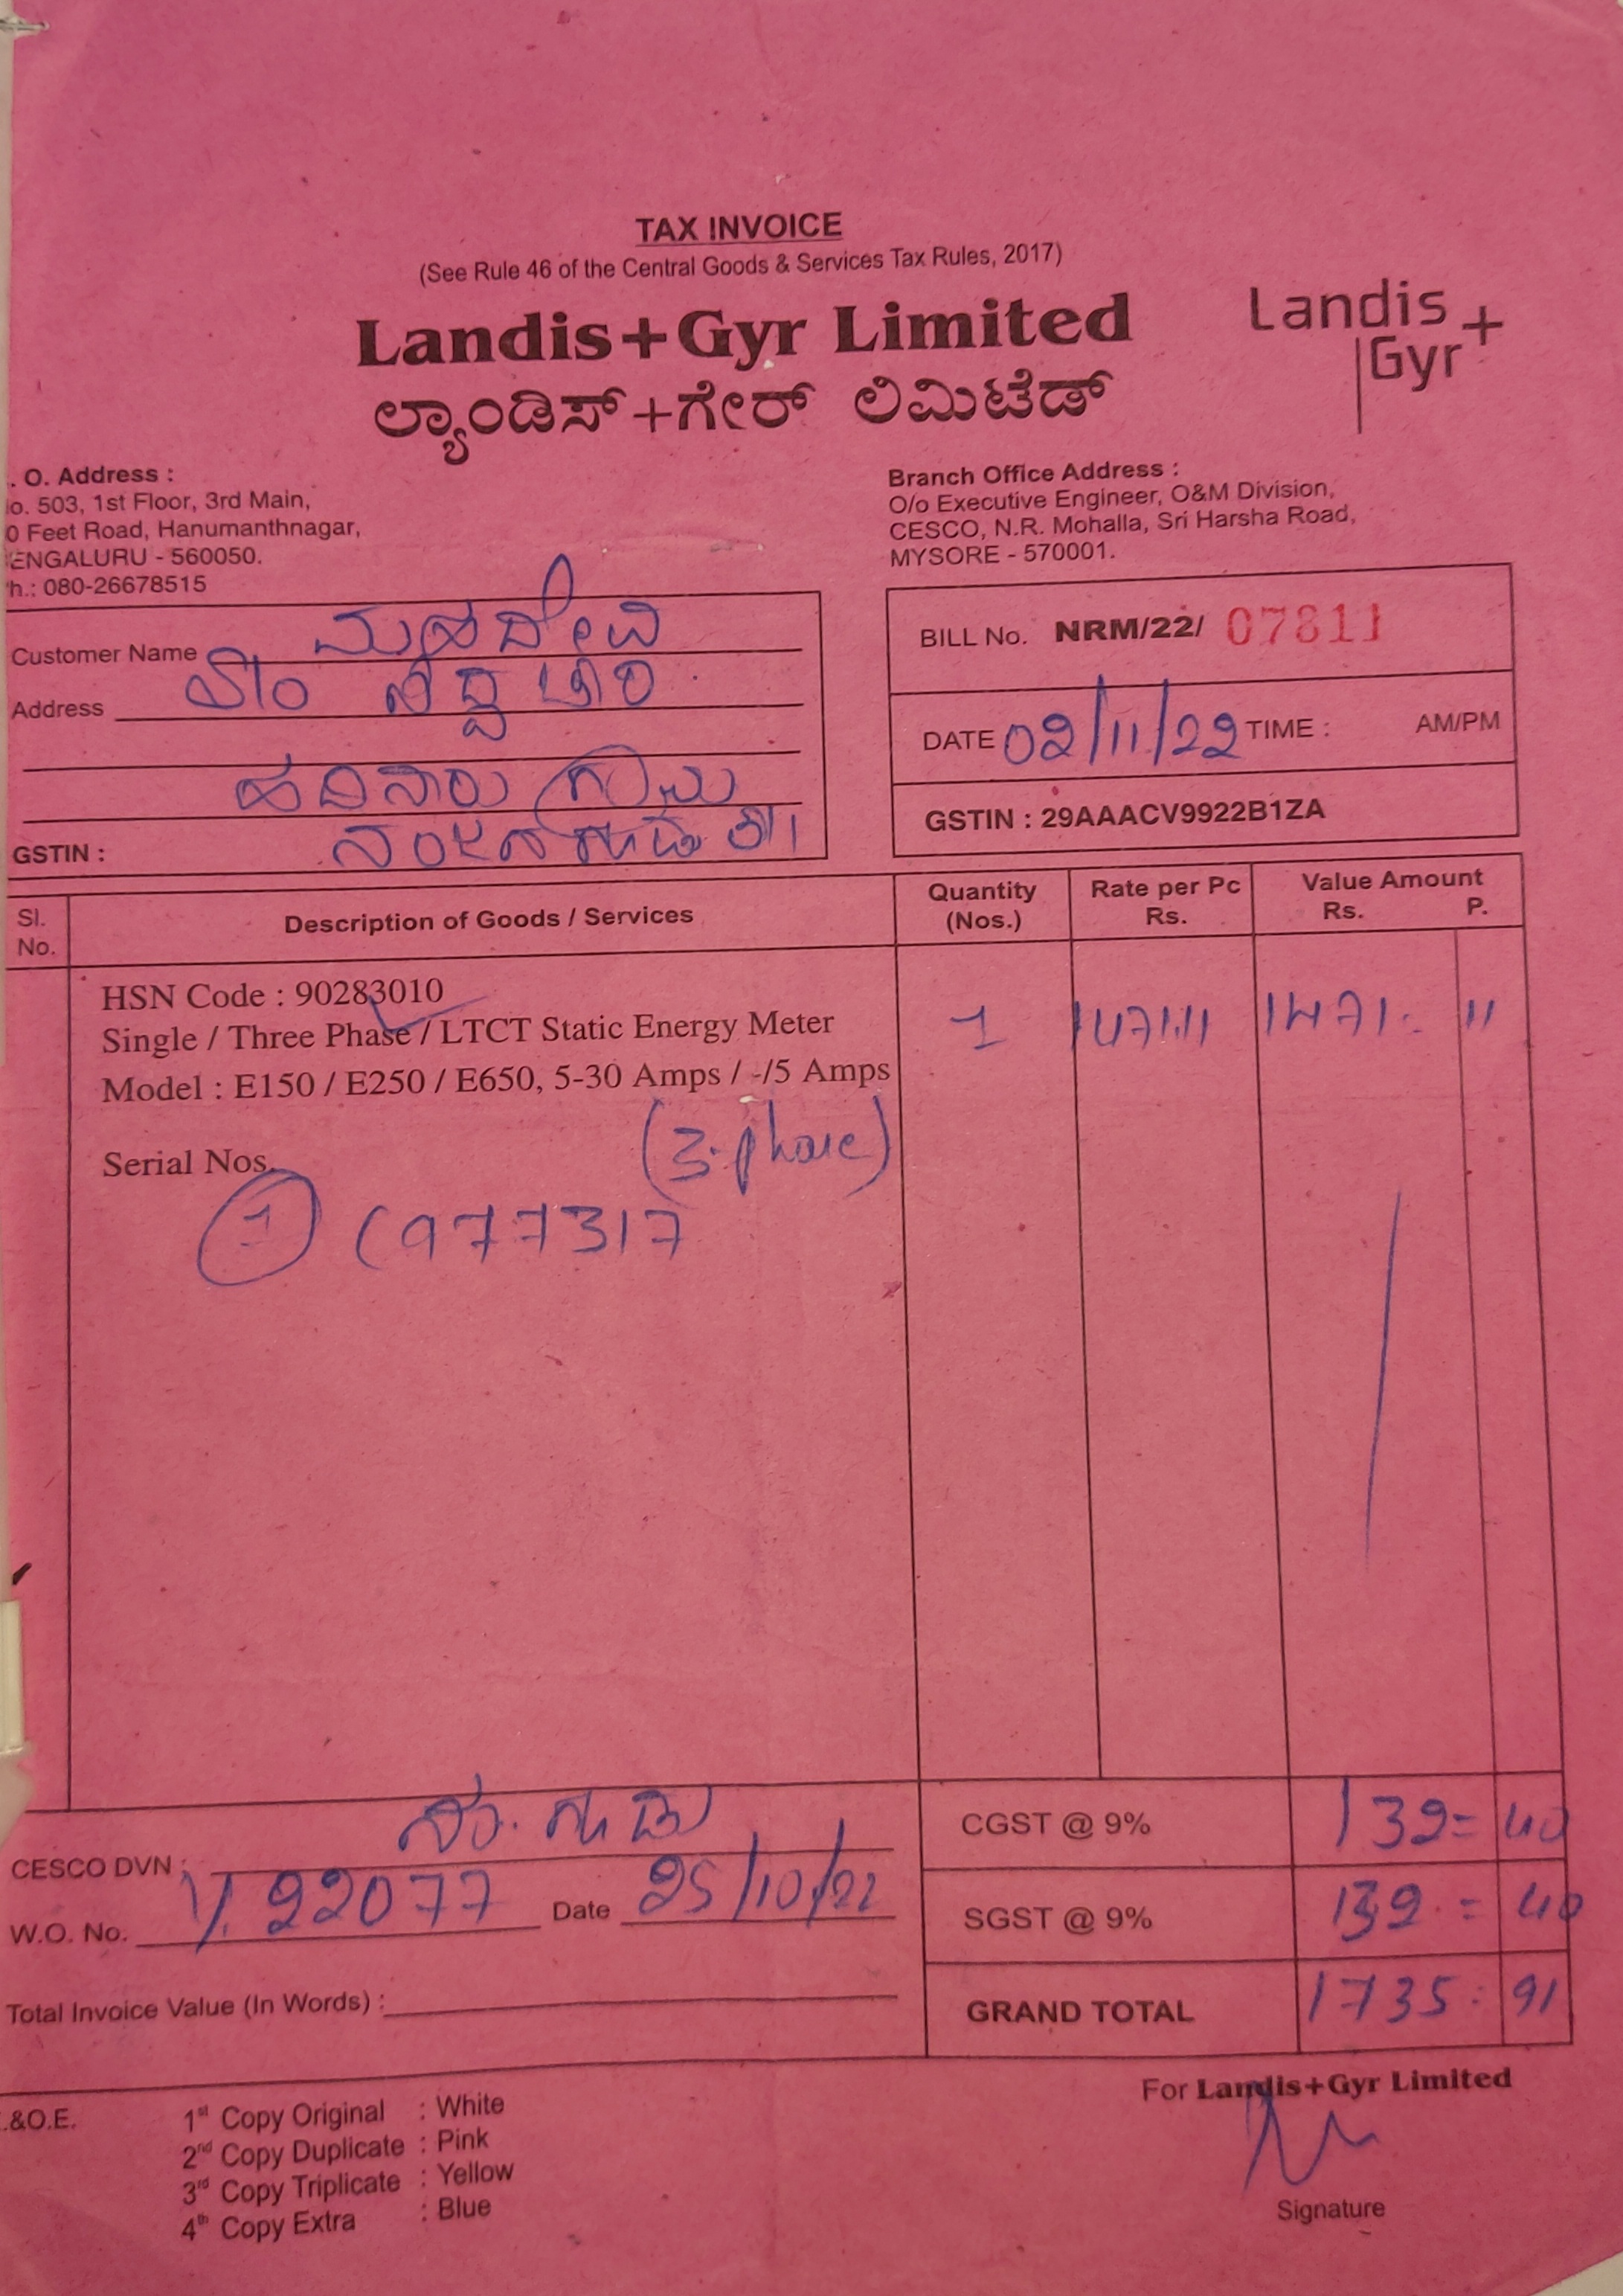 TAX INVOICE
(See Rule 46 of the Central Goods & Services Tax Rules, 2017)
Landis+Gyr Limited
ಲ್ಯಾಂಡಿಸ್+ಗೇರ್ ಲಿಮಿಟೆಡ್
Landis
Gyr+
. O. Address :
o. 503, 1st Floor, 3rd Main,
0 Feet Road, Hanumanthnagar,
ENGALURU - 560050.
h.: 080-26678515
Branch Office Address :
O/o Executive Engineer, O&M Division,
CESCO, N.R. Mohalla, Sri Harsha Road,
MYSORE - 570001.
Customer Name ಮಹದೇವಿ
Address
ಹದಿನಾರು ಗ್ರಾಮ
GSTIN : ನಂಜನಗೂಡು ತಾ।
BILL No. NRM/22/ 07811
DATE 02/11/22 TIME : AM/PM
GSTIN : 29AAACV9922B1ZA
Sl. No. Description of Goods / Services Quantity (Nos.) Rate per Pc Rs. Value Amount Rs. P.
HSN Code : 90283010
Single / Three Phase / LTCT Static Energy Meter 1 1471.11 1471. 11
Model : E150 / E250 / E650, 5-30 Amps / -/5 Amps
(3-phase)
Serial Nos.
1 (977317
CESCO DVN : ನಂ. ಗೂಡು
W.O. No. 22077 Date 25/10/22
Total Invoice Value (In Words) :
CGST @ 9% 132= 40
SGST @ 9% 132 = 40
GRAND TOTAL 1735 : 91
.&O.E.
1st Copy Original : White
2nd Copy Duplicate : Pink
3rd Copy Triplicate : Yellow
4th Copy Extra : Blue
For Landis+Gyr Limited
Signature